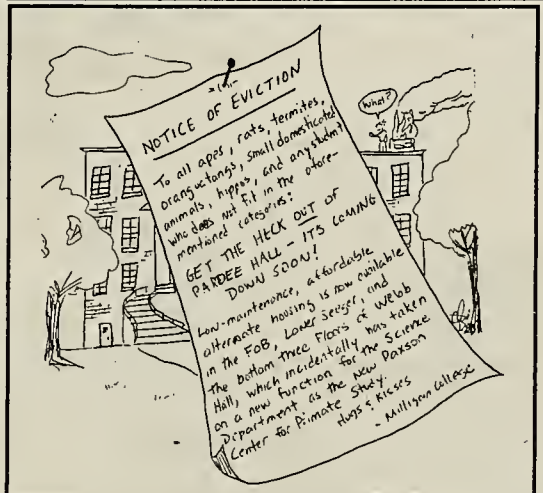 NOTICE OF EVICTION
To all apes, rats, termites,
oranguctangs, small domesticated
animals, hippos, and any student
who does not fit in the afore-
mentioned categories:
GET THE HECK OUT OF
PARDEE HALL - ITS COMING
DOWN SOON!
Low-maintenance, affordable
alternate housing is now available
in the FOB, Lower Seeger, and
the bottom three Floors of Webb
Hall, which incidentally has taken
on a new function for the Science
Department as the New Paxson
Center for Primate Study.
Hugs & Kisses
- Milligan College
What?